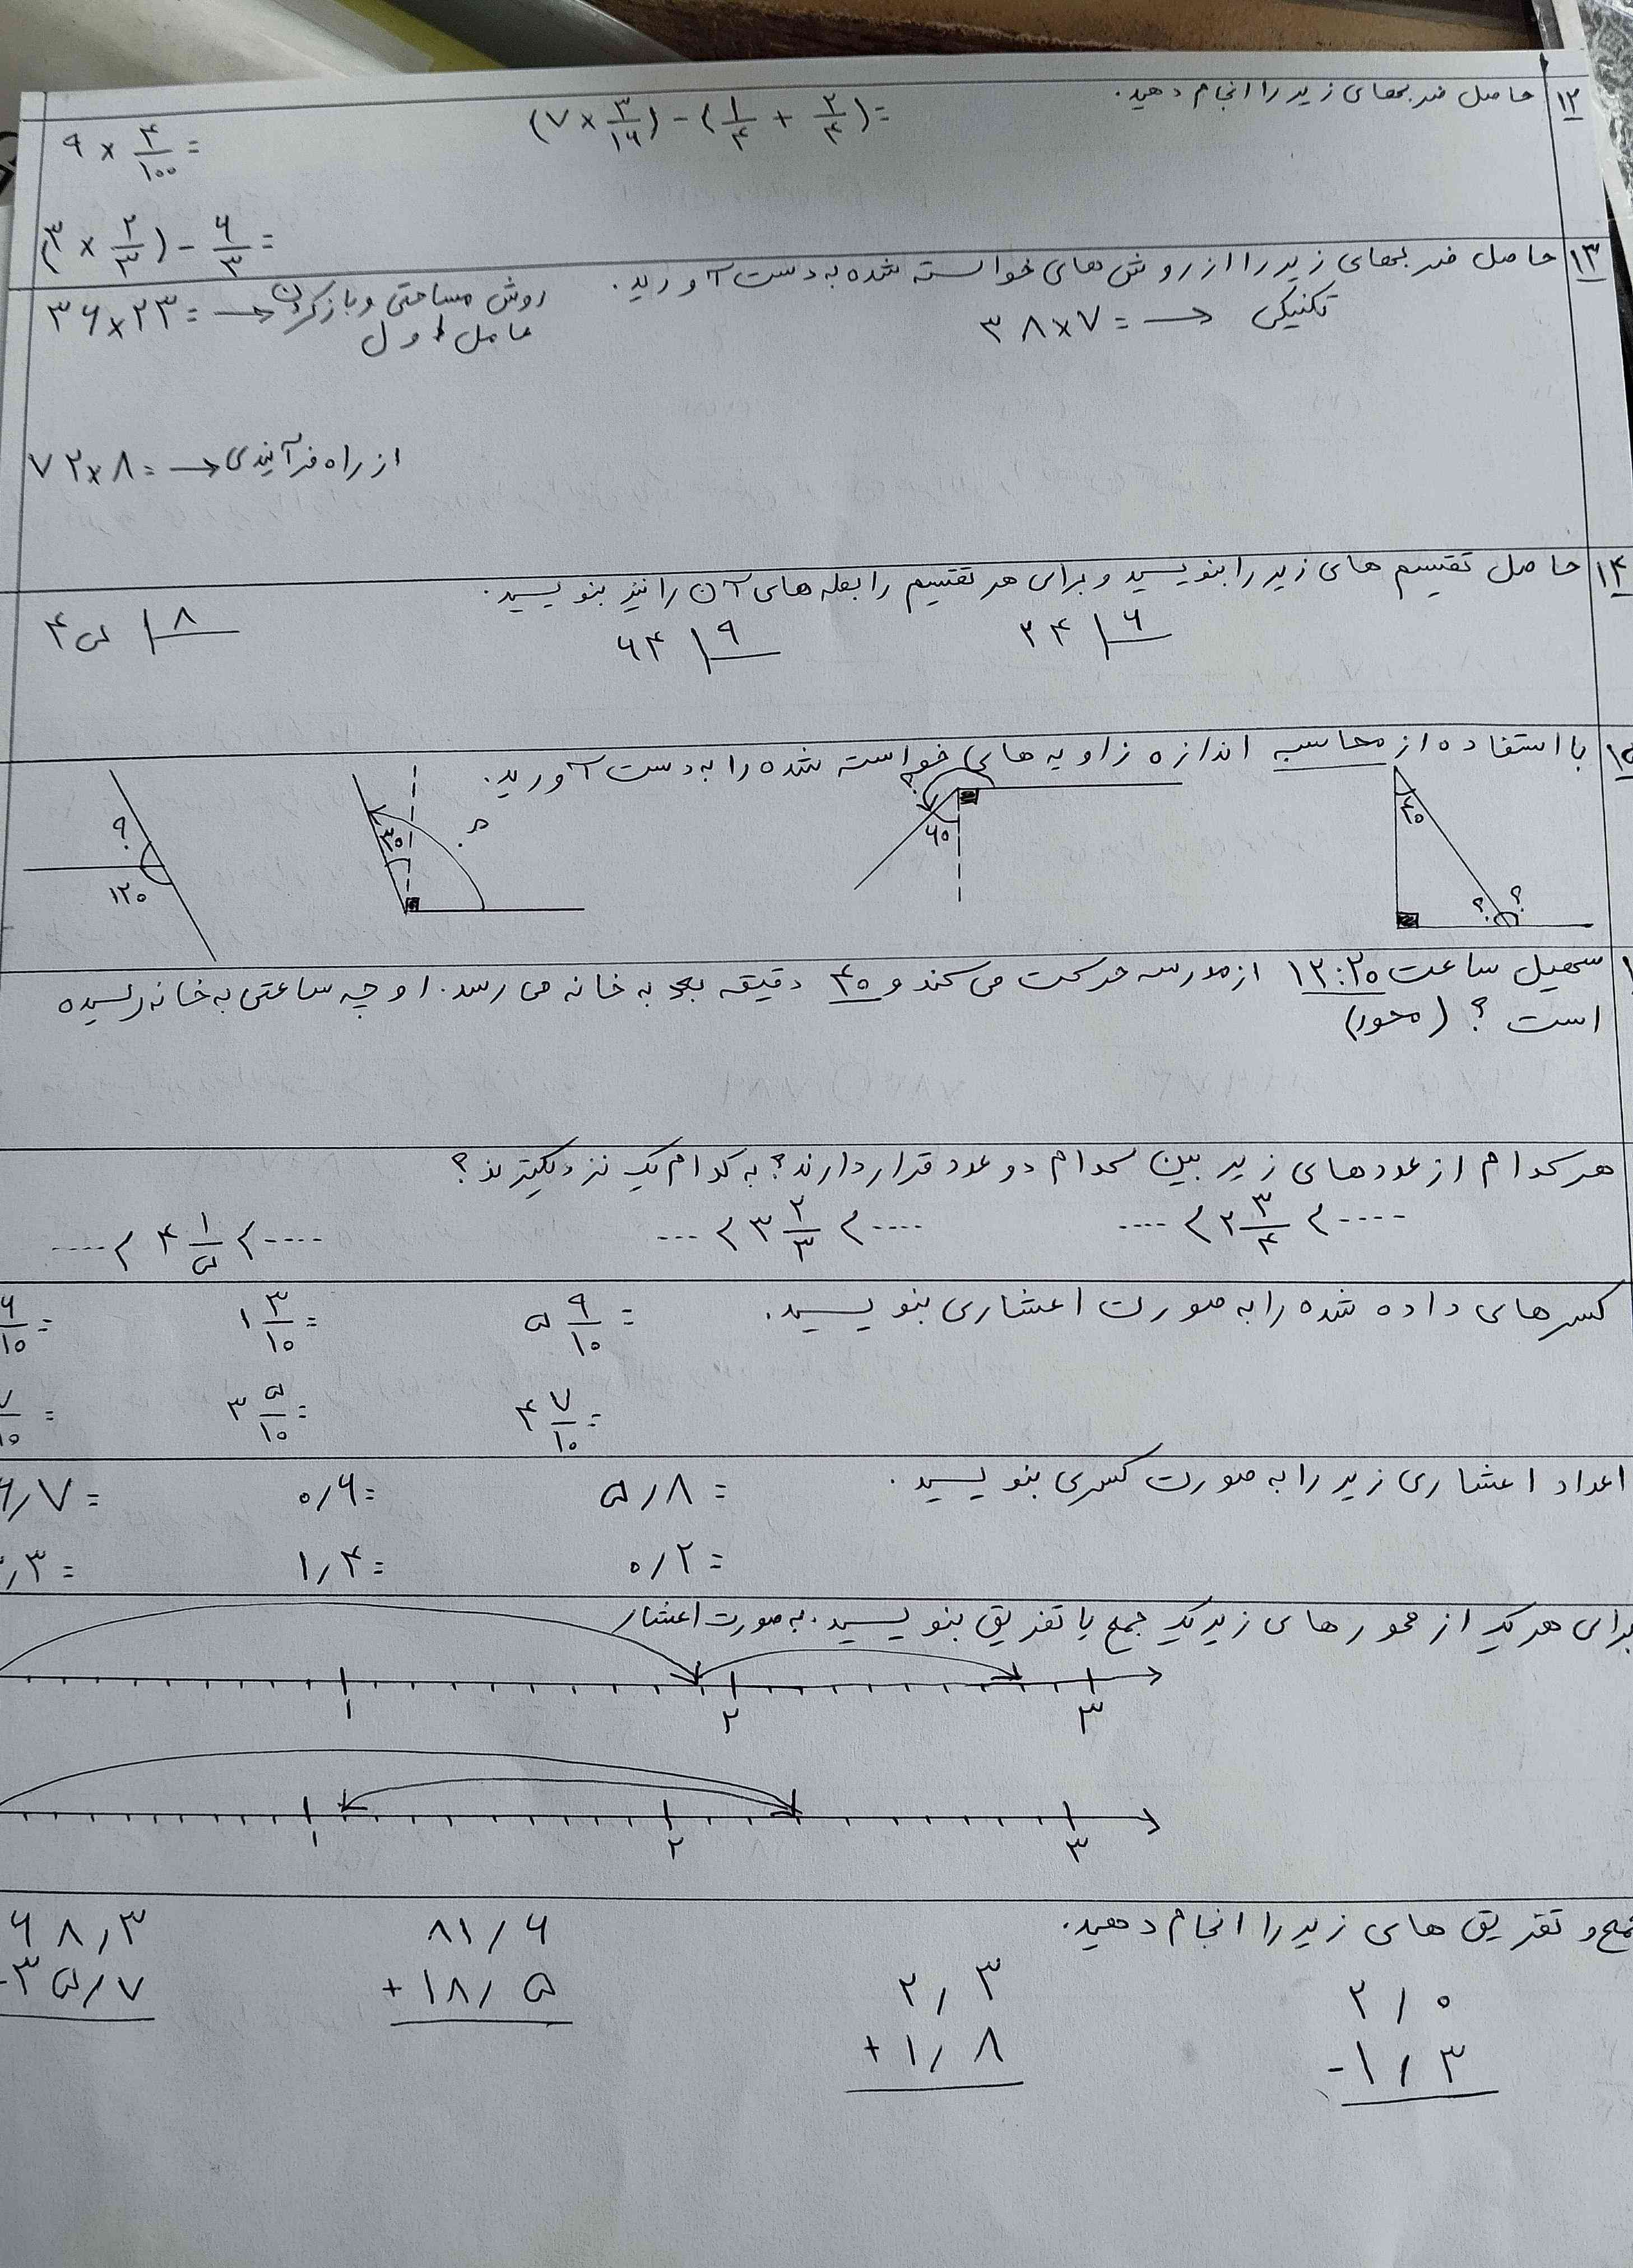 ۱۲ حاصل ضربهای زیر را انجام دهید.
(۷ × ۳/۱۶) - (۱/۴ + ۲/۴) =
۹ × ۴/۱۰۰ =
(۳ × ۲/۳) - ۶/۳ =
۱۳ حاصل ضربهای زیر را از روش های خواسته شده به دست آورید.
۳۸×۷ = → تکنیکی
۳۶×۲۳ = → روش مساحتی و باز کردن
عامل اول
۷۲×۸ = → از راه فرآیندی
۱۴ حاصل تقسیم های زیر را بنویسید و برای هر تقسیم رابطه های آن را نیز بنویسید.
۳۴ | ۶
۶۴ | ۹
۴۵ | ۸
۱۵ با استفاده از محاسبه اندازه زاویه های خواسته شده را به دست آورید.
۴۰
؟ ؟
؟
۶۰
؟
۳۰
؟
۱۲۰
سهیل ساعت ۱۲:۲۵ از مدرسه حرکت می کند و ۴۵ دقیقه بعد به خانه می رسد. او چه ساعتی به خانه رسیده
است ؟ (محور)
هر کدام از عددهای زیر بین کدام دو عدد قرار دارند؟ به کدام یک نزدیکترند؟
.... < ۲ ۳/۴ < ....
.... < ۳ ۲/۳ < ....
.... < ۴ ۱/۵ < ....
کسرهای داده شده را به صورت اعشاری بنویسید.
۵ ۹/۱۰ =
۱ ۳/۱۰ =
۶/۱۰ =
۴ ۷/۱۰ =
۳ ۵/۱۰ =
۷/۱۰ =
اعداد اعشاری زیر را به صورت کسری بنویسید.
۵/۸ =
۰/۶ =
۶/۷ =
۰/۲ =
۱/۴ =
/۳ =
برای هر یک از محورهای زیر یک جمع یا تفریق بنویسید. به صورت اعشار
۱ ۲ ۳
۱ ۲ ۳
جمع و تفریق های زیر را انجام دهید.
۲/۰
- ۱/۳
۲/۳
+ ۱/۸
۸۱/۶
+ ۱۸/۵
۶۸/۳
- ۳۵/۷